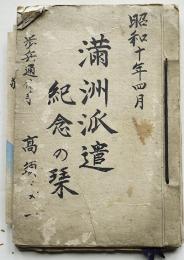 昭和十年四月
滿洲派遣
紀念の栞
歩兵通信
高須